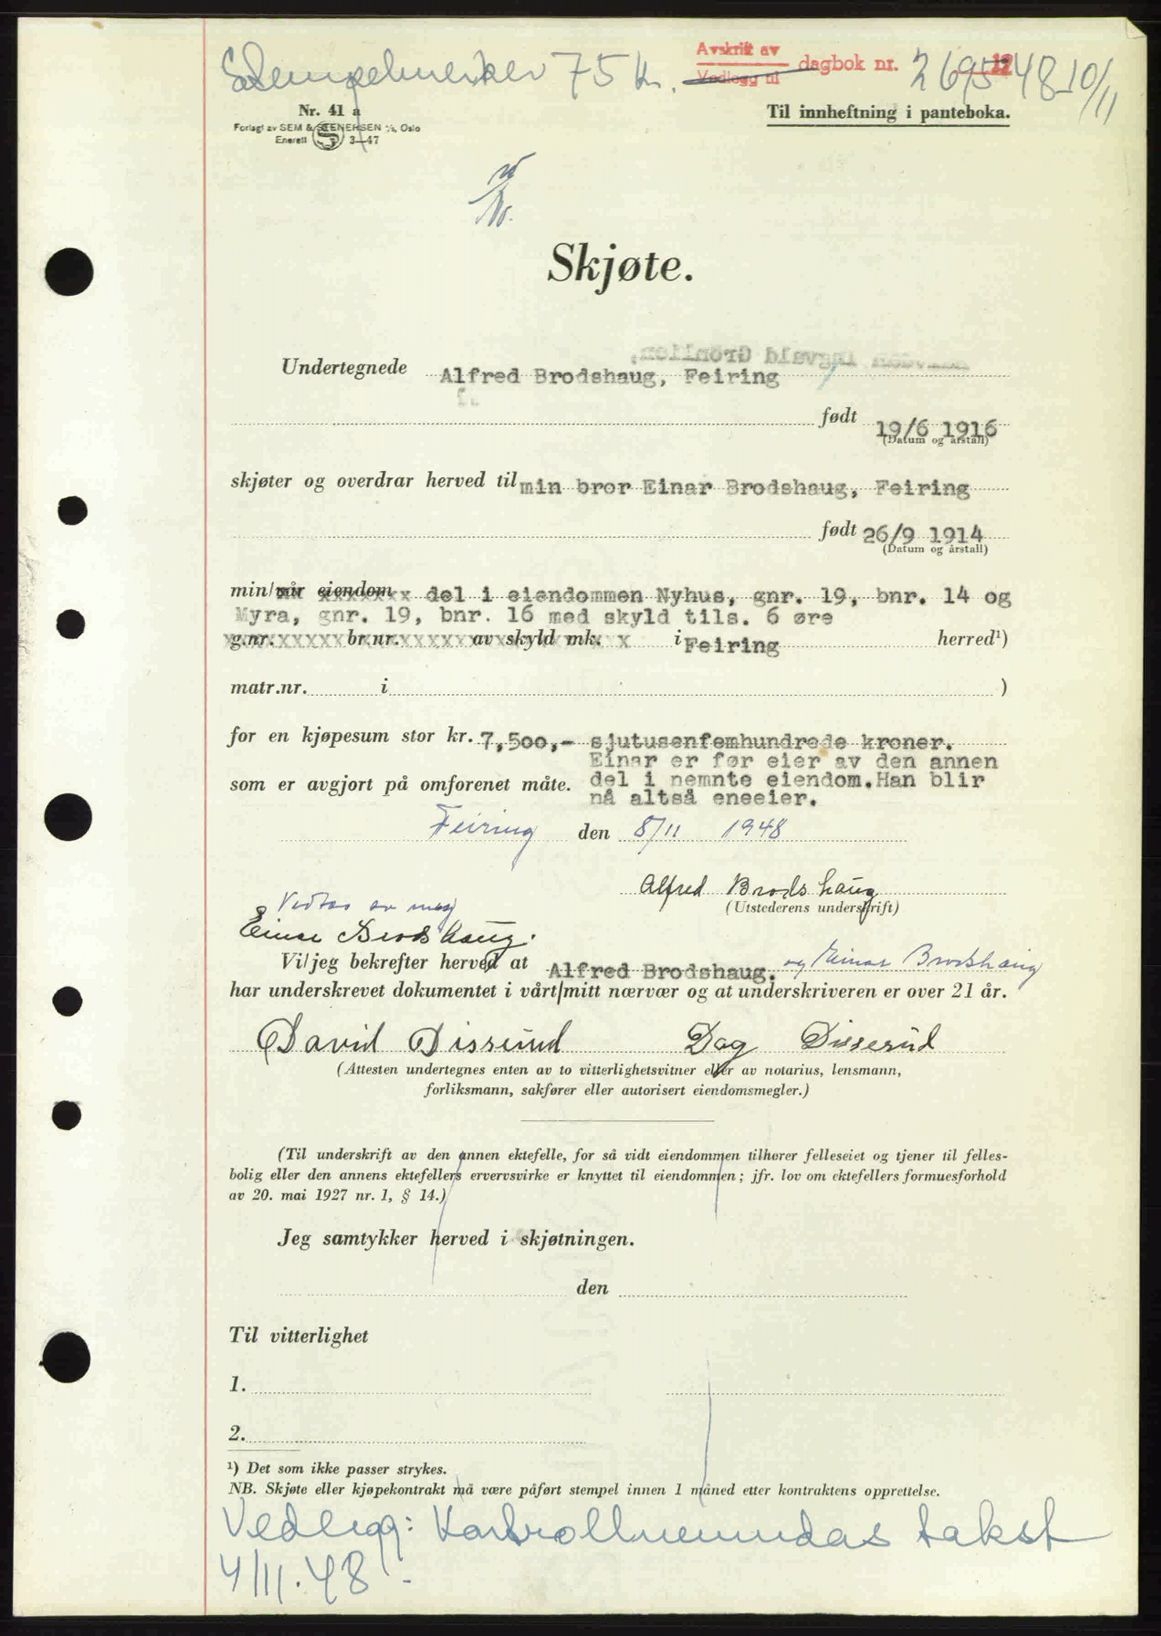 Stempelmerker 75 kr.
Avskrift av
Vedlegg til dagbok nr. 2695 48 10/11
Nr. 41 a
Forlagt av SEM & STENERSEN A/S, Oslo
Enerett S 3—47
Til innheftning i panteboka.
Skjøte.
Undertegnede Alfred Brodshaug, Feiring
født 19/6 1916
(Datum og årstall)
skjøter og overdrar herved til min bror Einar Brodshaug, Feiring
født 26/9 1914
(Datum og årstall)
min/vår eiendom del i eiendommen Nyhus, gnr. 19, bnr. 14 og
Myra, gnr. 19, bnr. 16 med skyld tils. 6 øre
g.nr. br.nr. av skyld mk. i Feiring herred¹)
matr.nr. i )
for en kjøpesum stor kr. 7,500,- sjutusenfemhundrede kroner.
Einar er før eier av den annen
som er avgjort på omforenet måte. del i nemnte eiendom. Han blir
nå altså eneeier.
Feiring den 8/11 1948
Alfred Brodshaug
(Utstederens underskrift)
Vedtas av meg
Einar Brodshaug.
Vi/jeg bekrefter herved at Alfred Brodshaug. og Einar Brodshaug
har underskrevet dokumentet i vårt/mitt nærvær og at underskriveren er over 21 år.
David Disserud Dag Disserud
(Attesten undertegnes enten av to vitterlighetsvitner eller av notarius, lensmann,
forliksmann, sakfører eller autorisert eiendomsmegler.)
(Til underskrift av den annen ektefelle, for så vidt eiendommen tilhører felleseiet og tjener til felles-
bolig eller den annens ektefellers ervervsvirke er knyttet til eiendommen; jfr. lov om ektefellers formuesforhold
av 20. mai 1927 nr. 1, § 14.)
Jeg samtykker herved i skjøtningen.
den
Til vitterlighet
1.
2.
¹) Det som ikke passer strykes.
NB. Skjøte eller kjøpekontrakt må være påført stempel innen 1 måned etter kontraktens opprettelse.
Vedlegg: Kontrollnemndas takst
4/11.48.